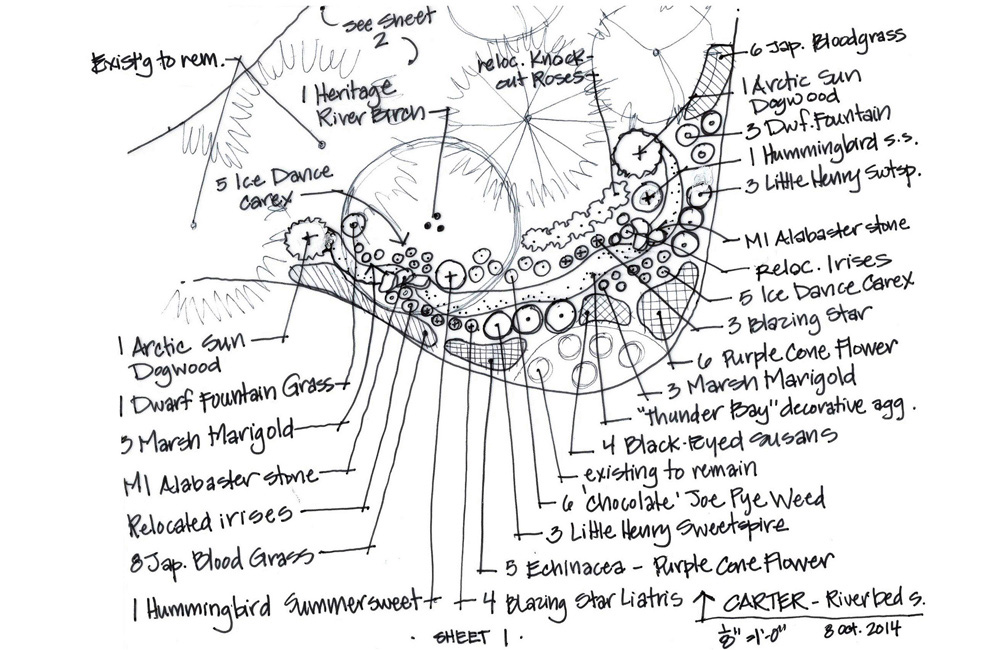 see sheet
2
Exist'g to rem.
1 Heritage
River Birch
reloc. Knock-
out Roses
5 Ice Dance
Carex
6 Jap. Bloodgrass
1 Arctic Sun
Dogwood
3 Dwf. Fountain
1 Hummingbird s.s.
3 Little Henry Swtsp.
MI Alabaster stone
Reloc. Irises
5 Ice Dance Carex
3 Blazing Star
6 Purple Cone Flower
3 Marsh Marigold
"Thunder Bay" decorative agg.
4 Black-Eyed Susans
existing to remain
6 'chocolate' Joe Pye Weed
3 Little Henry Sweetspire
5 Echinacea - Purple Cone Flower
4 Blazing Star Liatris
1 Arctic Sun
Dogwood
1 Dwarf Fountain Grass
3 Marsh Marigold
MI Alabaster stone
Relocated irises
8 Jap. Blood Grass
1 Hummingbird Summersweet
CARTER - Riverbed s.
1/8" = 1'-0" 8 Oct. 2014
· SHEET 1 ·